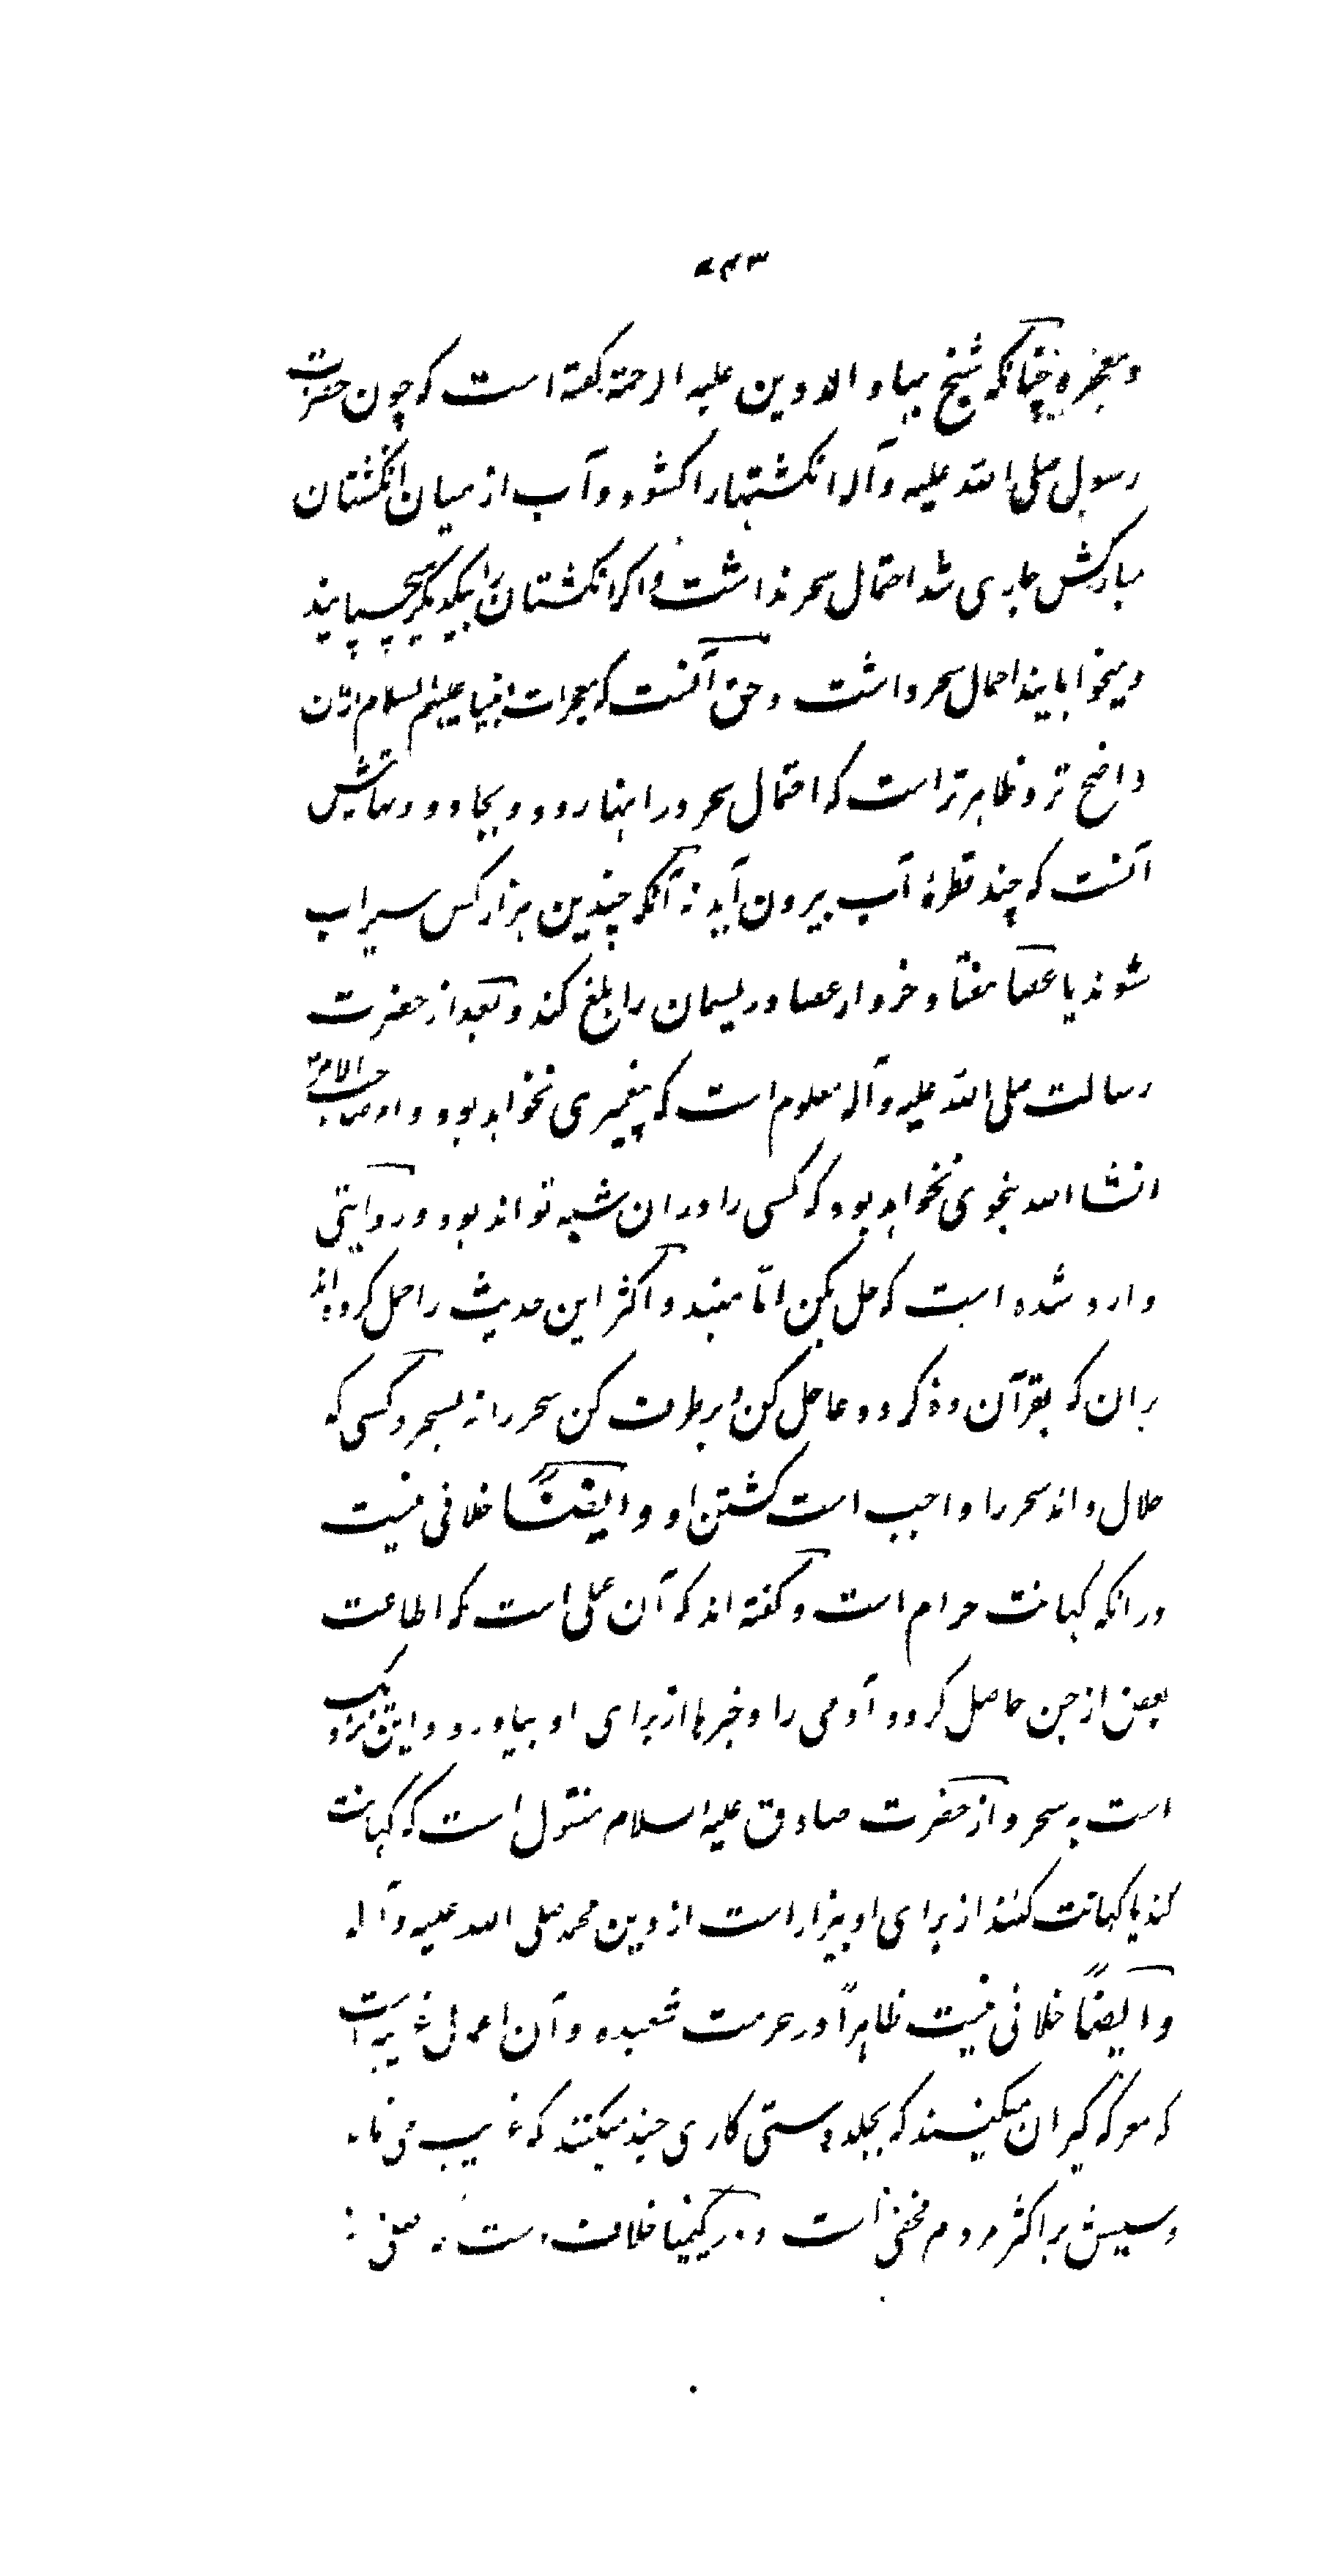 و معجزه چنانکه شیخ بهاء الدین علیه الرحمة گفته است که چون حضرت
رسول صلی الله علیه و آله انگشتها را گشود و آب از میان انگشتان
مبارکش جاری شد احتمال سحر نداشت و اگر انگشتان را بیکدیگر بچسپانید
و میخوابانید احتمال سحر داشت و حق آنست که معجزات انبیا علیهم السلام ازان
واضح تر و ظاهر تر است که احتمال سحر در اینها رود و بجا و و نهایتش
آنست که چند قطرهٔ آب بیرون آید نه آنکه چندین هزار کس سیراب
شوند یا عصا هفتاد خروار عصا و ریسمان را بلع کند و بعد از حضرت
رسالت صلی الله علیه و آله معلوم است که پیغمبری نخواهد بود و امر صاحب الامر
انشا الله بنحوی نخواهد بود که کسی را در ان شبهه تواند بود و روایتی
وارد شده است که حل بکن اما مبند و اکثر این حدیث را حمل کرده اند
بران که بقرآن و ذکر و دعا حل کن و برطرف کن سحر را نه بسحر و کسی که
حلال داند سحر را واجب است کشتن او و ایضًا خلافی نیست
در انکه کهانت حرام است و گفته اند که آن عملی است که اطاعت
بعض از جن حاصل کردد آدمی را و خبرها از برای او بیاورد و این نزدیک
است به سحر و از حضرت صادق علیه السلام منقول است که که کهانت
کند یا کهانت کنند از برای او بیزار است از دین محمد صلی الله علیه و آله
و ایضًا خلافی نیست ظاهرًا در حرمت شعبده و آن اعمال غریبه است
که معرکه گیران میکنند که بجلد دستی کاری چند میکنند که غریب می نماید
و سببش بر اکثر مردم مخفی است و در کیمیا خلاف است بعضی